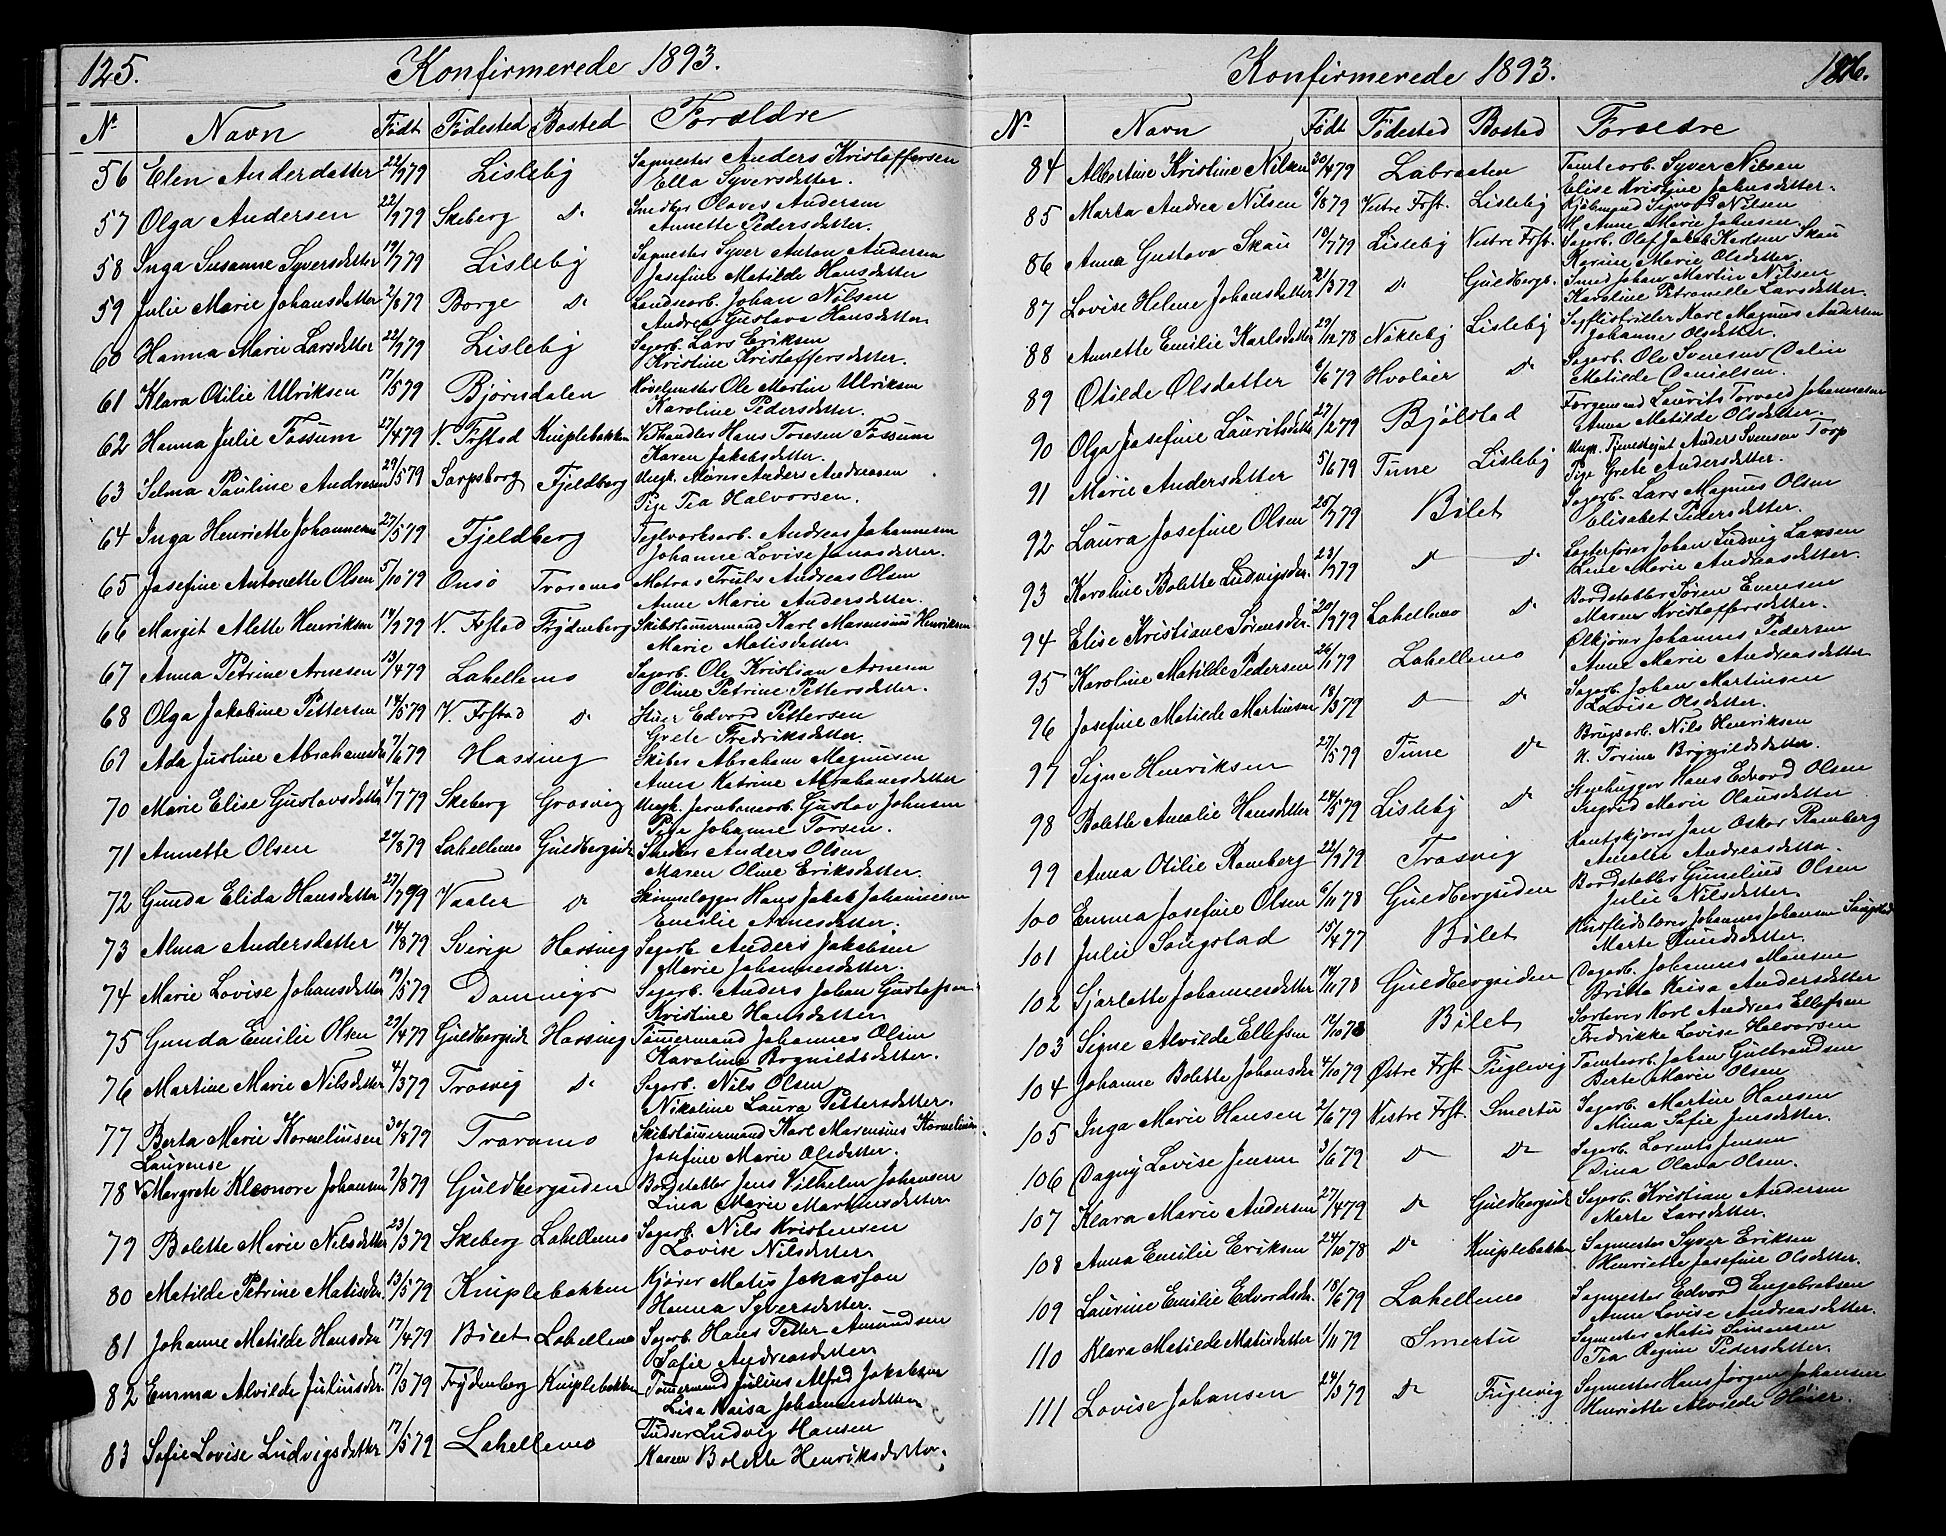 125. Konfirmerede 1893.
No Navn Født Fødested Bosted Forældre
56 Elen Andersdatter 22/9 79 Lisleby Sagmester Anders Kristoffersen
Ella Syversdatter.
57 Olga Andersen 22/9 79 Skeberg do Smedbr Olaves Andersen
Annette Pedersdatter.
58 Inga Susanne Syversdatter 19/7 79 Lisleby Sagmester Syver Anton Andersen
Josefine Matilde Hansdatter
59 Julie Marie Johansdatter 2/8 79 Borge do Landsarb. Johan Nilsen
Andrea Gustava Hansdatter
60 Hanna Marie Larsdatter 22/9 79 Lisleby Sagarb. Lars Eriksen
Kristine Kristoffersdatter.
61 Klara Otilie Ulriksen 17/5 79 Bjørndalen Høvelmester Ole Martin Ulriksen
Karoline Pedersdatter.
62 Hanna Julie Fossum 27/4 79 V. Frstad Kniplebakken Vedhandler Hans Toresen Fossum
Karen Jakobsdatter.
63 Selma Pauline Andreasen 29/5 79 Sarpsborg Fjeldberg Ungk. Murer Anders Andreasen
Pige Tea Halvorsen.
64 Inga Henriette Johannesen 27/5 79 Fjeldberg Teglværksarb. Andreas Johannesen
Johanne Lovise Jonasdatter.
65 Josefine Antonette Olsen 5/10 79 Onsø Trosvmo Matros Truls Andreas Olsen
Anne Marie Andersdatter.
66 Margit Alette Henriksen 14/9 79 V. Frstad Frydenberg Skibstømmermand Karl Marensius Henriksen
Marie Matisdatter.
67 Anna Petrine Arnesen 13/4 79 Lahellemo Sagarb. Ole Kristian Arnesen
Oline Petrine Pettersdatter.
68 Olga Jakobine Pettersen 14/5 79 V. Frstad do Stuer Edvard Pettersen
Grete Fredriksdatter.
69 Ada Justine Abrahamsdtr 7/6 79 Hassing Skiber Abraham Magnusen
Anne Katrine Abrahamsdatter
70 Marie Elise Gustavsdatter 4/7 79 Skeberg Grosvig Ungk. Jernbanearb. Gustav Johnsen
Pige Johanne Torsen.
71 Annette Olsen 27/8 79 Lahellemo Guldbergsid Snedker Anders Olsen
Maren Oline Eriksdatter.
72 Gunda Elida Hansdatter 27/7 79 Vaaler do Skinnelægger Hans Jakob Johannesen
Emilie Arnesdatter.
73 Alma Andersdatter 14/8 79 Sverige Hassing Sagarb. Anders Jakobsen
Marie Johannesdatter.
74 Marie Lovise Johansdatter 19/5 79 Damnigs Sagarb. Anders Johan Gustafsen
Kristine Hansdatter
75 Gunda Emilie Olsen 29/4 79 Guldbergsid Hassing Tømmermand Johannes Olsen
Karoline Brynildsdatter.
76 Martine Marie Nilsdatter 4/3 79 Trosvig do Sagarb. Nils Olsen
Nikoline Laura Pettersdatter.
77 Berta Marie Kornelinsen 30/8 79 Travamo Skibstømmermand Karl Marensius Kornelinsen
Josefine Marie Olsdatter.
Laurense
78 Margrete Eleonore Johansen 2/8 79 Guldbergsiden Bordstabler Jens Vilhelm Johansen
Lina Marie Martinusdatter
79 Bolette Marie Nilsdatter 23/3 79 Skeberg Lahellemo Sagarb. Nils Kristensen
Lovise Nilsdatter
80 Matilde Petrine Matisdtr. 13/5 79 Kniplebakken Kjører Matis Jonasson
Hanna Syversdatter.
81 Johanne Matilde Hansdtr 17/4 79 Bilet Lahellemo Sagarb. Hans Petter Amundsen
Sofie Andreasdatter
82 Emma Alvilde Juliusdtr. 17/3 79 Frydenberg Kniplebakken Tømmermand Julius Alfred Jakobsen
Lisa Kaisa Johannesdatter
83 Sofie Lovise Ludvigsdatter 17/5 79 Lahellemo Ludvig Hansen
Karen Bolette Henriksdatter.
Konfirmerede 1893. 126.
No Navn Født Fødested Bosted Forældre
84 Albertine Kristine Nilsen 30/4 79 Labraaten Tomtearb. Syver Nilsen
Elise Kristine Johnsdatter.
85 Marta Andrea Nilsen 6/8 79 Vestre Frst. Lisleby Kjøbmand Sigvard Nilsen
H. Anne Marie Johnsen.
86 Anna Gustava Skau 10/7 79 Lisleby Vestre Frst. Sagarb. Olof Jakob Karlsen Skau
Karine Marie Olsdatter.
87 Lovise Helene Johansdatter 21/3 79 do Guldbergs. Smed Johan Martin Nilsen
Karoline Petronelle Larsdatter.
88 Annette Emilie Karlsdatter 29/12 78 Nøkleby Lisleby Karl Magnus Andersen
Johanne Olsdatter.
89 Otilde Olsdatter 6/6 79 Hvaløer do Sagarb. Ole Svensen Dalin
Matilde Danielsen.
90 Olga Josefine Lauritsdatter 27/12 79 Bjølstad Færgemand Laurits Torvald Johannesen
Anna Matilde Olsdatter.
91 Marie Andersdatter 5/6 79 Tune Lisleby Ungk. Tjenestegut Anders Svensen Torp
Pige Grete Andersdatter.
92 Laura Josefine Olsen 25/7 79 Bilet Sagarb. Lars Magnus Olsen
Elisabet Pedersdatter.
93 Karoline Bolette Ludvigsdtr. 23/1 79 do do Lægterfører Johan Ludvig Larsen
Lene Marie Andreasdatter.
94 Elise Kristiane Sørensdtr. 20/9 79 Lahellemo do Bordstabler Søren Evensen
Maren Kristoffersdatter.
95 Karoline Matilde Pedersen 26/1 79 Lahellemo Ølkjører Johannes Pedersen
Anne Marie Andreasdatter
96 Josefine Matilde Martinsen 18/3 79 do do Sagarb. Johan Martinsen
Lovise Olsdatter.
97 Signe Henriksen 27/5 79 Tune do Brugsarb. Nils Henriksen
H. Torine Brynildsdatter.
98 Bolette Amalie Hansdatter 24/5 79 Lisleby do Hans Edvard Olsen
Ingrid Marie Olausdatter
99 Anna Otilie Ramberg 22/9 79 Trosvig Kantskjærer Jan Oskar Ramberg
Amalie Andreasdatter.
100 Emma Josefine Olsen 6/11 78 Guldbergsiden Bordstabler Gunelius Olsen
Julie Nilsdatter.
101 Julie Saugstad 15/4 77 Bilet Johannes Johansen Saugstad
Marte Amundsdatter.
102 Sjarlotte Johannesdatter 14/11 78 Guldbergsiden Dagarb. Johannes Monsen
Britta Kaisa Andersdatter
103 Signe Alvilde Ellefsen 12/10 78 Bilet Sorterer Karl Andreas Ellefsen
Fredrikke Lovise Halvorsen
104 Johanne Bolette Johansdtr 4/10 79 Østre Frst Fuglevig Tomtearb. Johan Gulbrandsen
Berte Marie Olsen
105 Inga Marie Hansen 2/6 79 Vestre Frst. Smertu Sagarb. Martin Hansen
Mina Sofie Jensdatter.
106 Dagny Lovise Jensen 3/6 79 do do Sagarb. Lorents Jensen
Dina Olava Olsen.
107 Klara Marie Andersen 27/4 79 do Guldbergsid Sagarb. Kristian Andersen
Marte Larsdatter.
108 Anna Emilie Eriksen 24/10 78 do Kniplebakken Sagmester Syver Eriksen
Henriette Josefine Olsdatter.
109 Laurine Emilie Edvardsdtr. 18/6 79 Lahellemo Sagmester Edvard Engebretsen
Anne Lovise Andreasdatter.
110 Klara Matilde Matisdatter 1/11 79 Smertu Sagmester Matis Simensen
Tea Regine Pedersdatter.
111 Lovise Johansen 24/3 79 do Fuglevig Sagmester Hans Jørgen Johansen
Henriette Alvilde Høier.